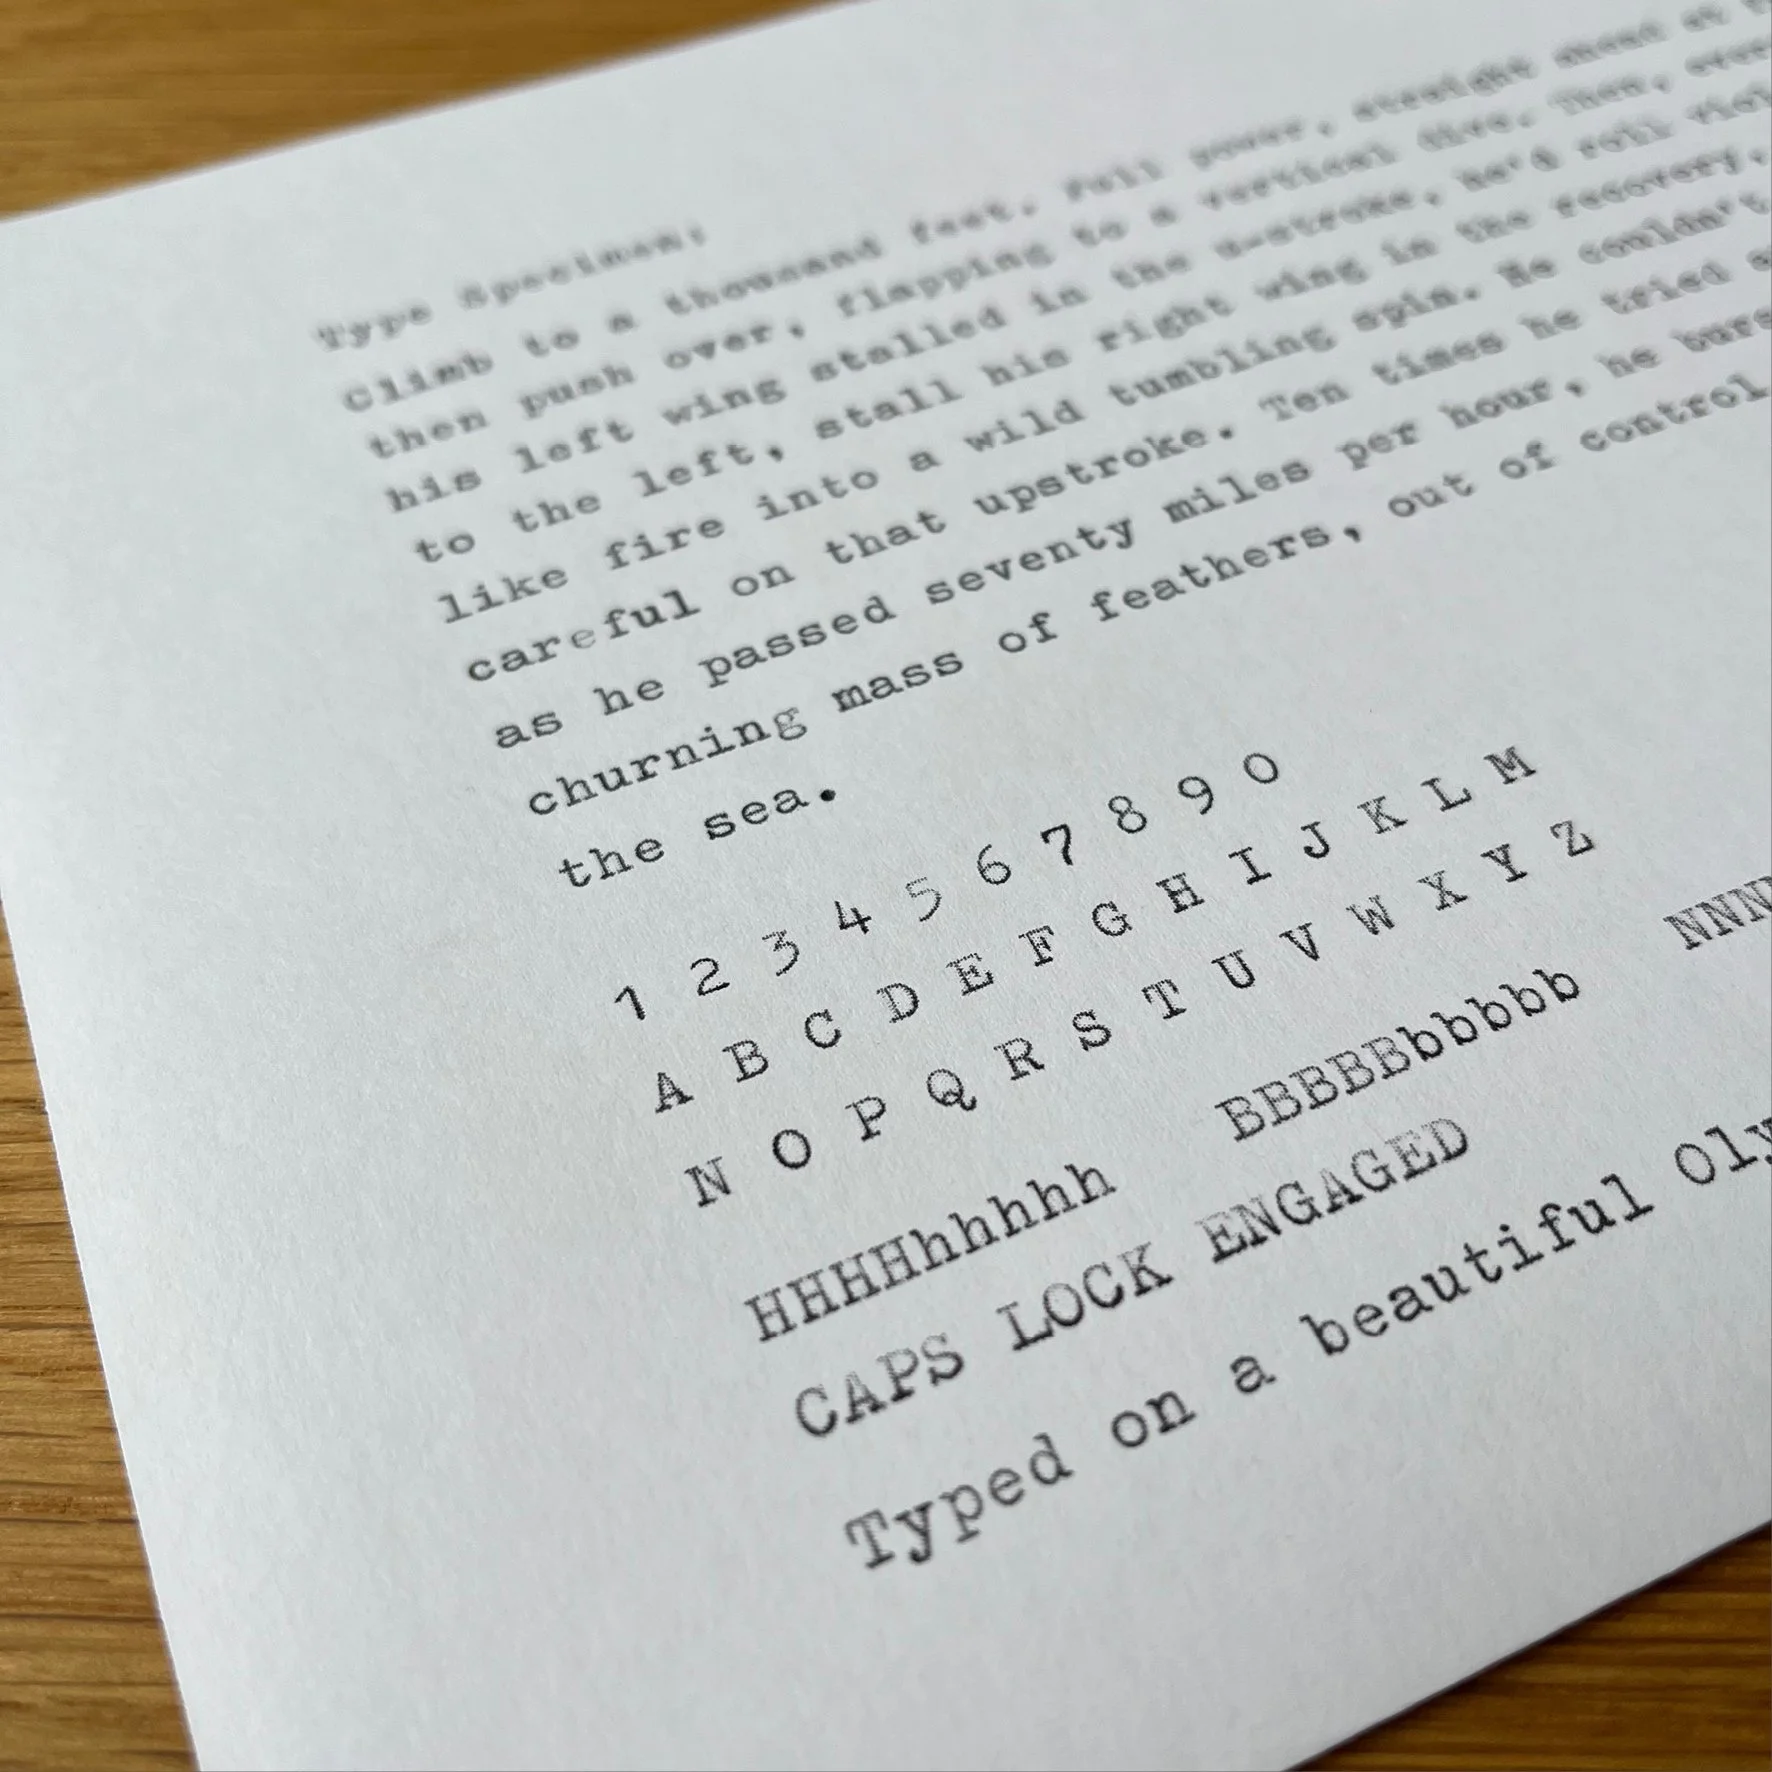 Type Specimen:
Climb to a thousand feet. Full power, straight ahead at
then push over, flapping to a vertical dive. Then,
his left wing stalled in the u-stroke, he'd roll
to the left, stall his right wing in the recovery,
like fire into a wild tumbling spin. He couldn't
careful on that upstroke. Ten times he tried
as he passed seventy miles per hour, he
churning mass of feathers, out of control
the sea.
1 2 3 4 5 6 7 8 9 0
A B C D E F G H I J K L M
N O P Q R S T U V W X Y Z
HHHHHhhhhh BBBBBbbbbb NNN
CAPS LOCK ENGAGED
Typed on a beautiful Oly